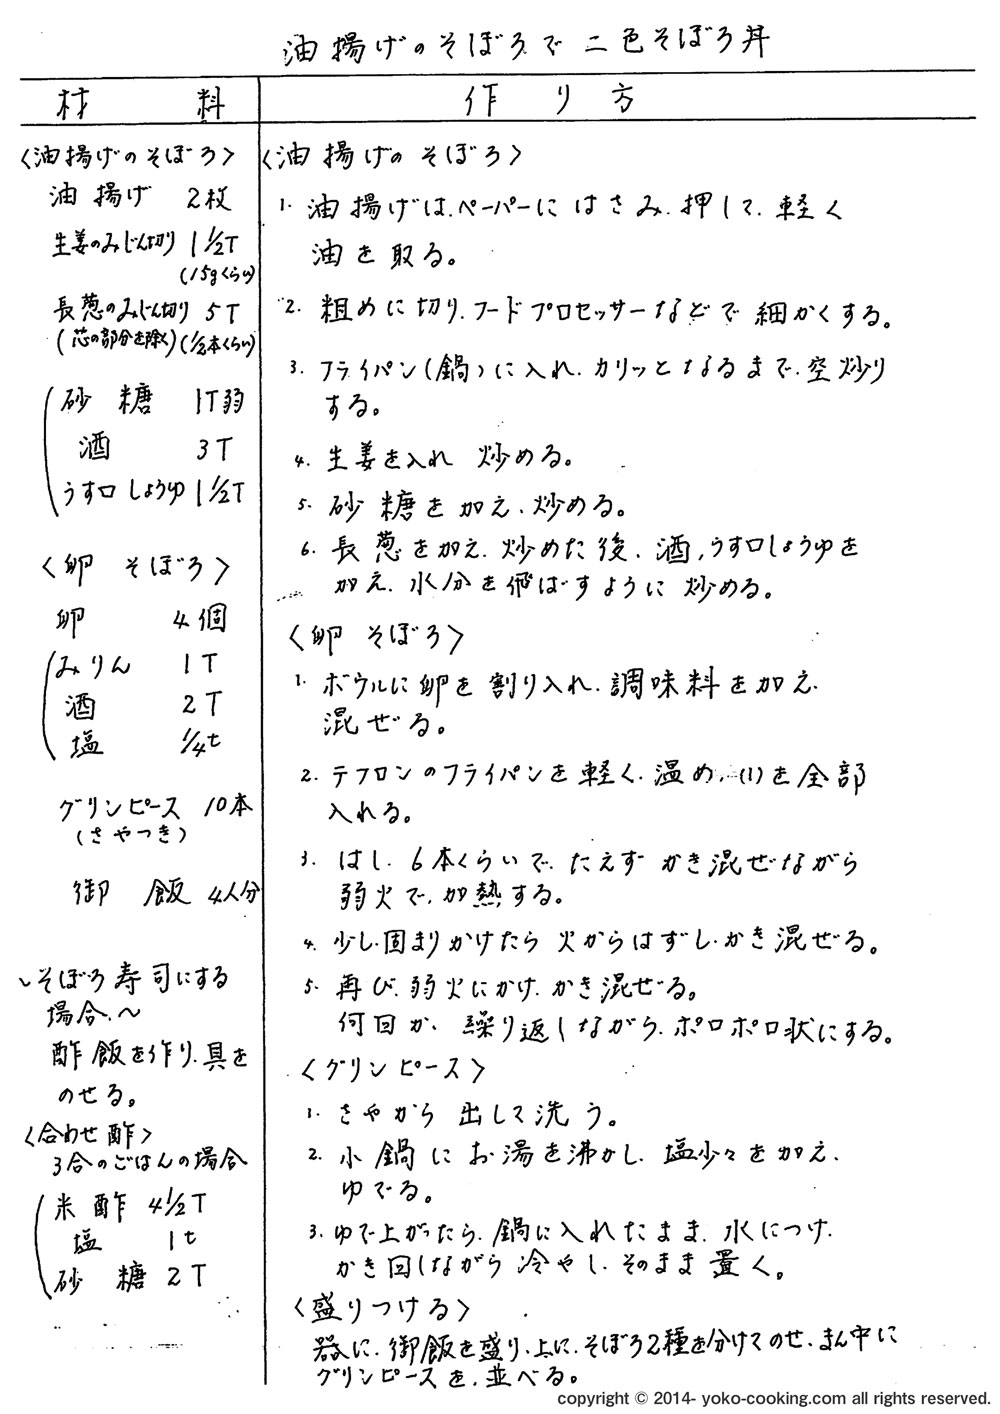 油揚げのそぼろで二色そぼろ丼
材料
作り方
〈油揚げのそぼろ〉
油揚げ 2枚
生姜のみじん切り 1 1/2T
(15gくらい)
長葱のみじん切り 5T
(芯の部分を除く)(1/2本くらい)
砂糖 1T弱
酒 3T
うす口しょうゆ 1 1/2T
〈卵そぼろ〉
卵 4個
みりん 1T
酒 2T
塩 1/4t
グリンピース 10本
(さやつき)
御飯 4人分
〜そぼろ寿司にする
場合〜
酢飯を作り、具を
のせる。
〈合わせ酢〉
3合のごはんの場合
米酢 4 1/2T
塩 1t
砂糖 2T
〈油揚げのそぼろ〉
1. 油揚げは、ペーパーにはさみ、押して、軽く
油を取る。
2. 粗めに切り、フードプロセッサーなどで細かくする。
3. フライパン(鍋)に入れ、カリッとなるまで、空炒り
する。
4. 生姜を入れ 炒める。
5. 砂糖を加え、炒める。
6. 長葱を加え、炒めた後、酒、うす口しょうゆを
加え、水分を飛ばすように炒める。
〈卵そぼろ〉
1. ボウルに卵を割り入れ、調味料を加え、
混ぜる。
2. テフロンのフライパンを軽く、温め、(1)を全部
入れる。
3. はし、6本くらいで、たえずかき混ぜながら
弱火で、加熱する。
4. 少し、固まりかけたら火からはずし、かき混ぜる。
5. 再び、弱火にかけ、かき混ぜる。
何回か、繰り返しながら、ポロポロ状にする。
〈グリンピース〉
1. さやから出して洗う。
2. 小鍋にお湯を沸かし、塩少々を加え、
ゆでる。
3. ゆで上がったら、鍋に入れたまま、水につけ、
かき回しながら冷やし、そのまま置く。
〈盛りつける〉
器に、御飯を盛り、上に、そぼろ2種を分けてのせ、まん中に
グリンピースを、並べる。
copyright © 2014- yoko-cooking.com all rights reserved.